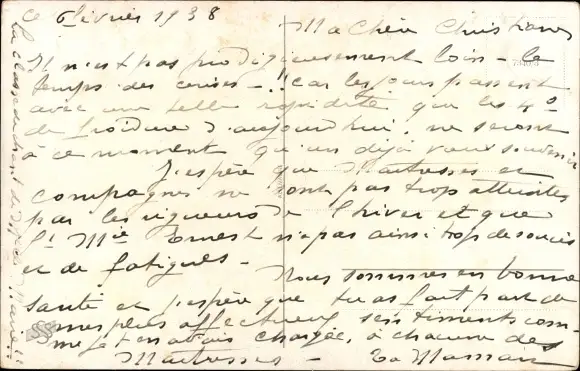 ce 6 Février 1938
Ma chère Christiane
Il n'est pas prodigieusement loin - le
temps des cerises - !! car les jours passent
avec une telle rapidité que les 4°
de froidure d'aujourd'hui, ne seront
à ce moment qu'un déjà vieux souvenir
J'espère que Maîtresses et
compagnes ne sont pas trop atteintes
par les rigueurs de l'hiver et que
Mie Ernest n'a pas ainsi trop de soucis
et de fatigues -
Nous sommes en bonne
santé et j'espère que tu as fait part de
mes plus affectueux sentiments com
me je t'en avais chargée, à chacune des
Maîtresses - Ta Maman
La classe de chant de